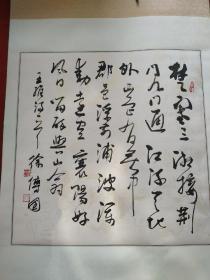 楚塞三湘接荆
门九派通江流天地
外山色有无中
郡邑浮前浦波澜
动远空襄阳好
风日留醉与山翁
王维诗